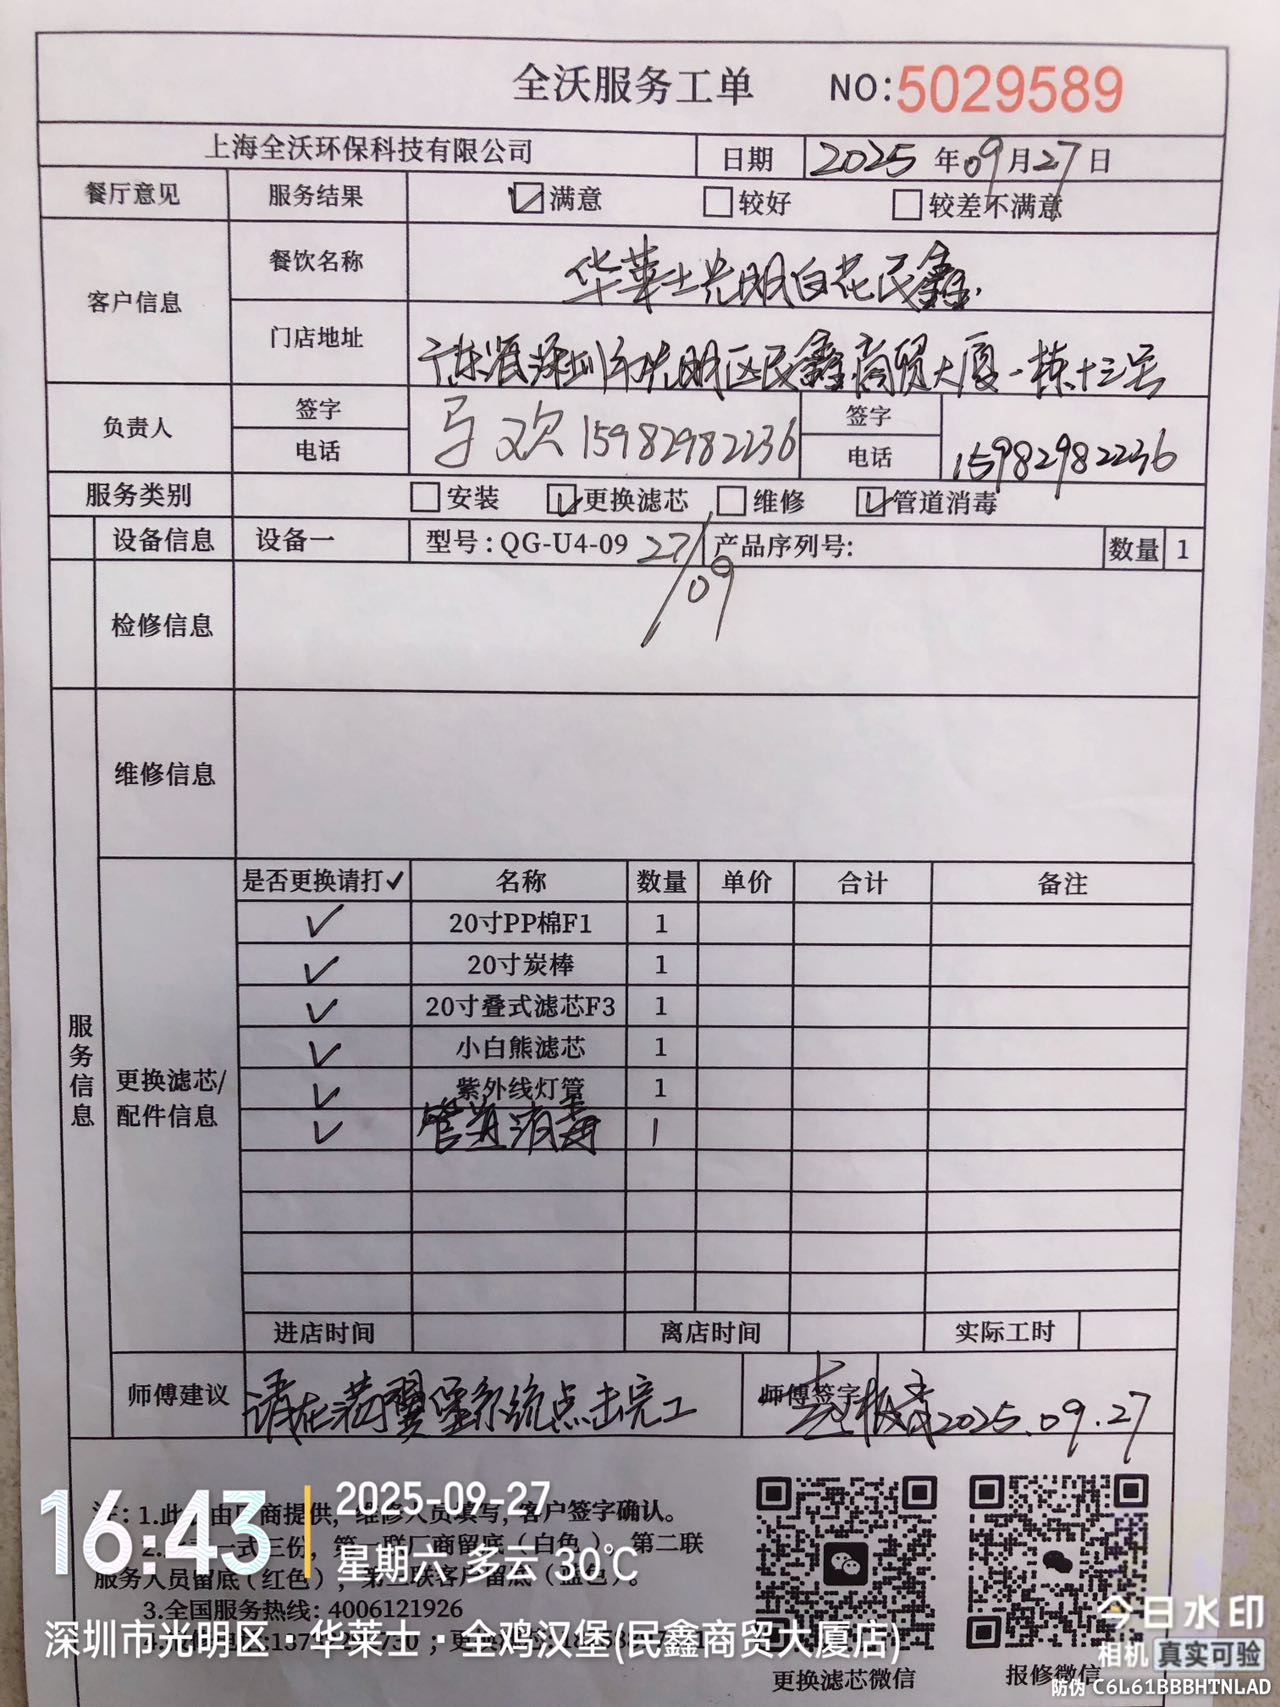 全沃服务工单 NO:5029589
上海全沃环保科技有限公司 日期 2025 年 09 月 27 日
餐厅意见 服务结果 满意 较好 较差不满意
客户信息 餐饮名称 华莱士光明白花民鑫
门店地址 广东省深圳市光明区民鑫商贸大厦一栋十三号
负责人 签字 马欢 15982982236 签字
电话 电话 15982982236
服务类别 安装 更换滤芯 维修 管道消毒
设备信息 设备一 型号:QG-U4-09 27/09 产品序列号: 数量 1
检修信息
维修信息
服务信息
更换滤芯/
配件信息
是否更换请打✓ 名称 数量 单价 合计 备注
✓ 20寸PP棉F1 1
✓ 20寸炭棒 1
✓ 20寸叠式滤芯F3 1
✓ 小白熊滤芯 1
✓ 紫外线灯管 1
✓ 管道消毒 1
进店时间 离店时间 实际工时
师傅建议 请在 系统点击完工 师傅签字 2025.09.27
注:1.此 由厂商提供,维修人员填写,客户签字确认。
一式三份,第一联厂商留底(白色),第二联
服务人员留底(红色),第三联客户留底(蓝色)。
3.全国服务热线:4006121926
更换滤芯微信 报修微信
16:43 2025-09-27
星期六 多云 30℃
深圳市光明区·华莱士·全鸡汉堡(民鑫商贸大厦店)
今日水印
相机 真实可验
防伪 C6L61BBBHTNLAD